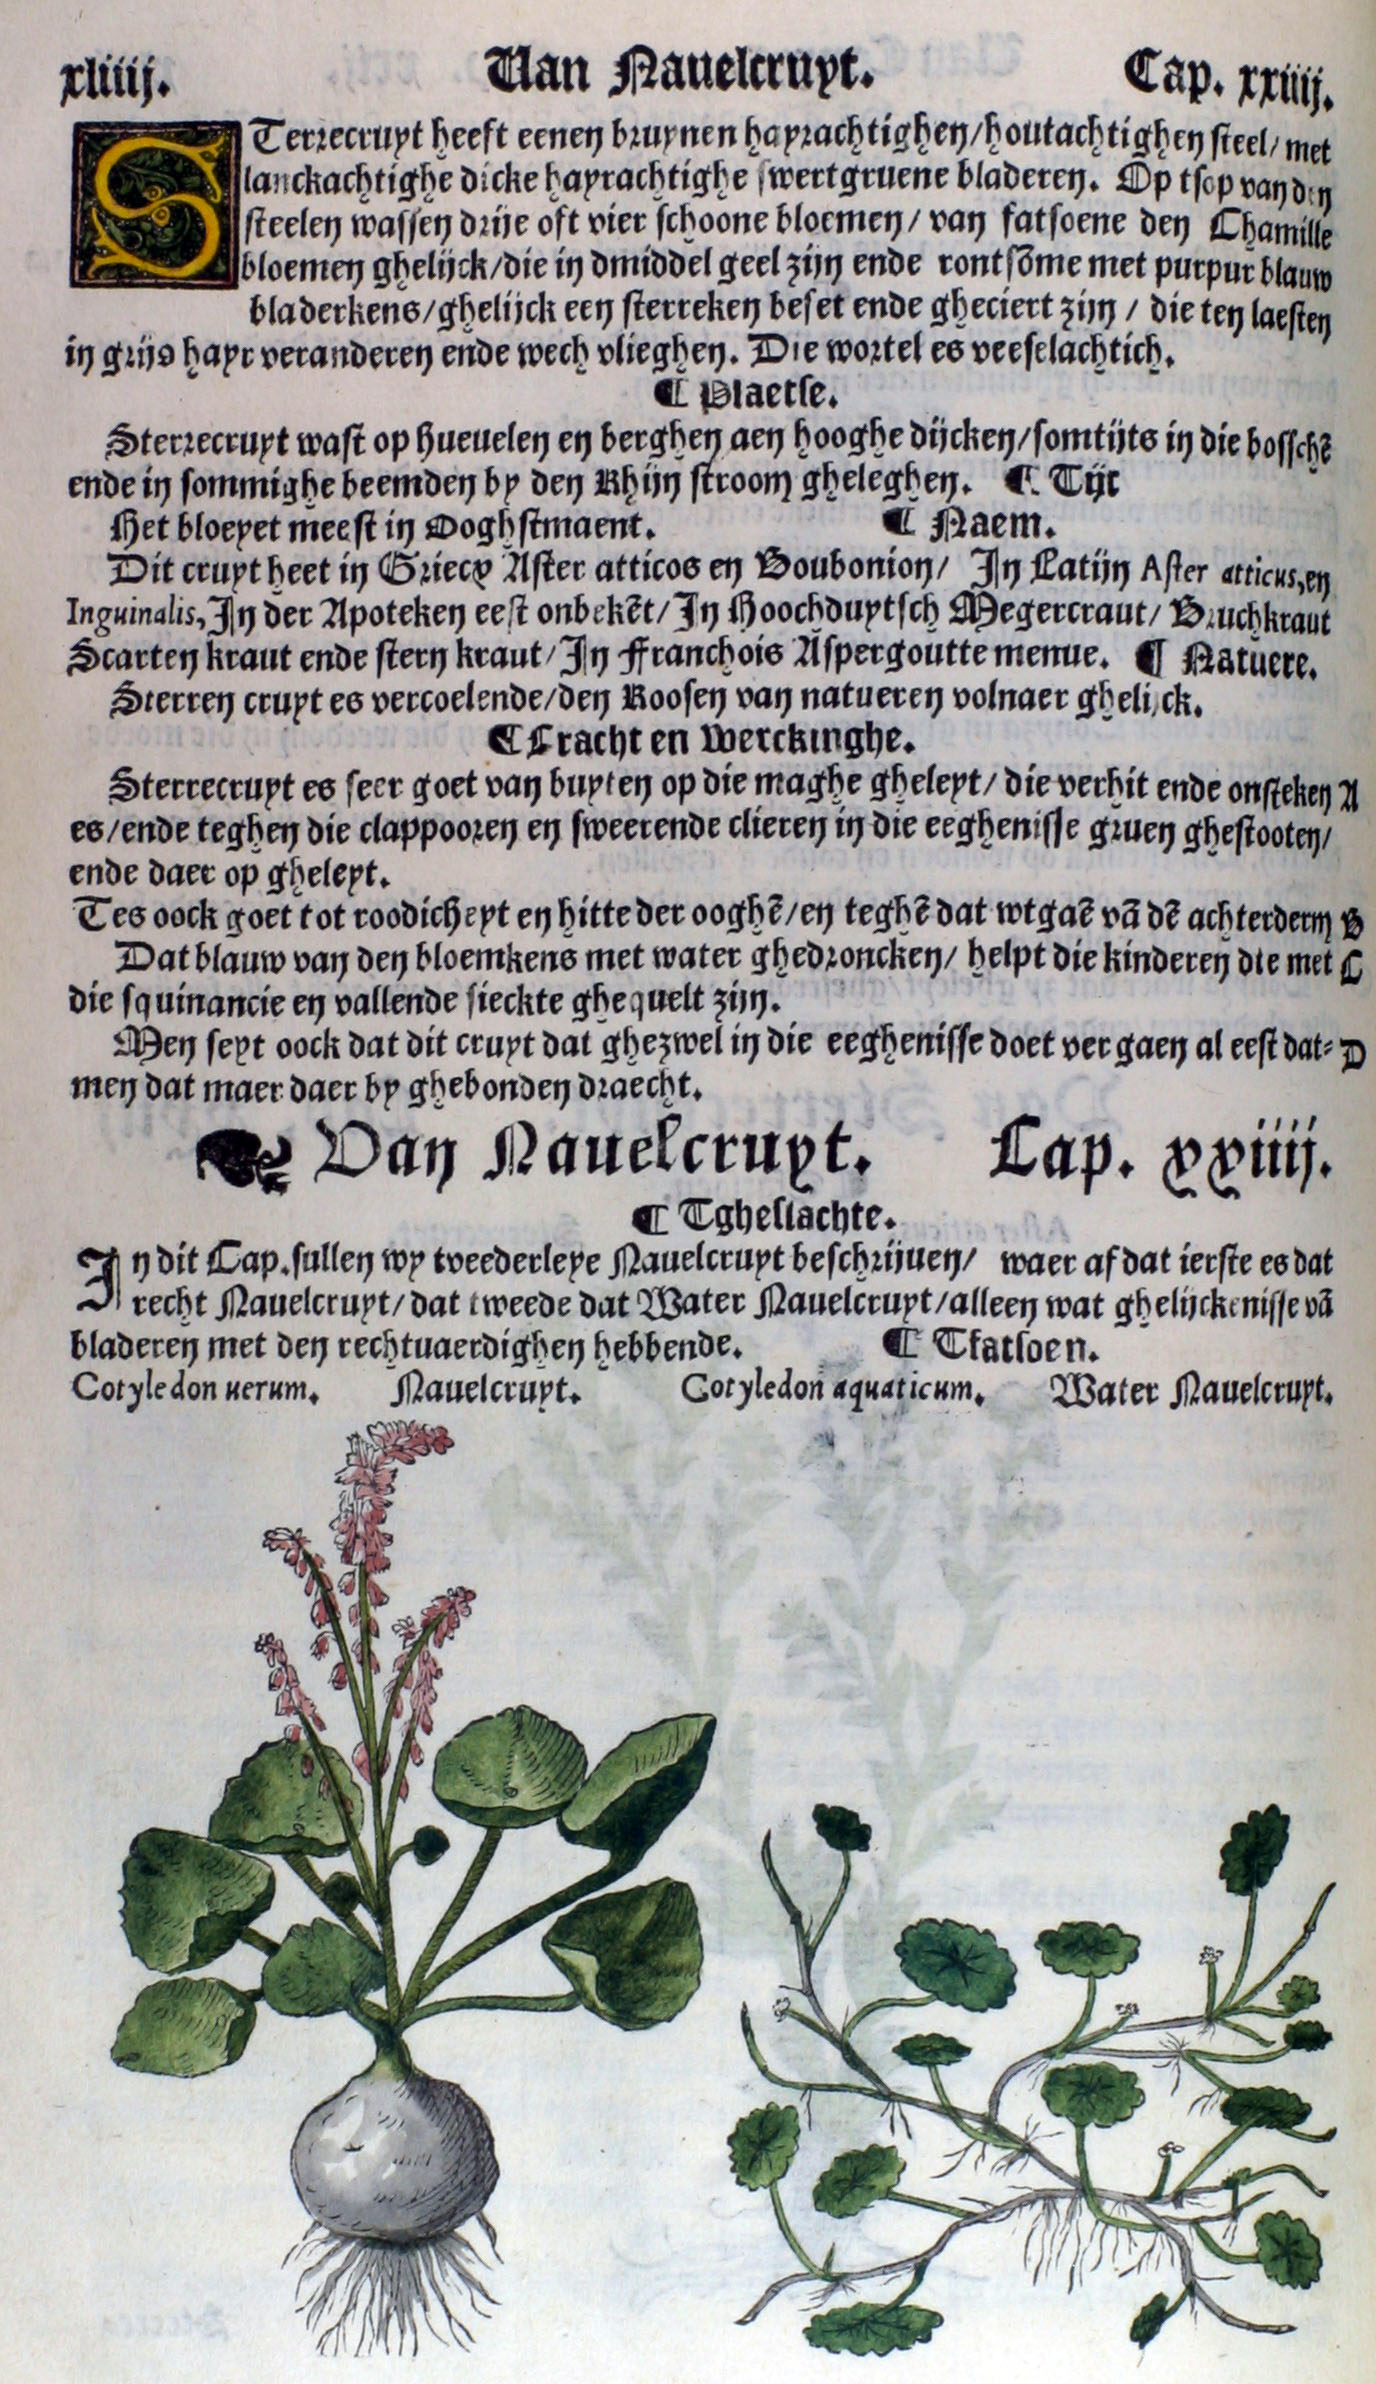 xliiij. Van Nauelcruyt. Cap. xxiiij.
STerrecruyt heeft eenen bruynen hayrachtighen/houtachtighen steel/met
lanckachtighe dicke hayrachtighe swertgruene bladeren. Op tsop van den
steelen wassen drije oft vier schoone bloemen/ van fatsoene den Chamille
bloemen ghelijck/die in dmiddel geel zijn ende rontsōme met purpur blauw
bladerkens/ghelijck een sterreken beset ende gheciert zijn / die ten laesten
in grijs hayr veranderen ende wech vlieghen. Die wortel es veeselachtich.
¶ Plaetse.
Sterrecruyt wast op Hueuelen en berghen aen hooghe dijcken/somtijts in die bosschē
ende in sommighe beemden by den Rhijn stroom gheleghen. ¶ Tijt
Het bloeyet meest in Ooghstmaent. ¶ Naem.
Dit cruyt heet in Griecx Aster atticos en Boubonion/ In Latijn Aster atticus, en
Inguinalis, In der Apoteken eest onbekēt/In Hoochduytsch Megercraut/ Bruchkraut
Scarten kraut ende stern kraut/In Franchois Aspergoutte menue. ¶ Natuere.
Sterren cruyt es vercoelende/den Roosen van natueren volnaer ghelijck.
¶ Cracht en Werckinghe.
Sterrecruyt es seer goet van buyten op die maghe gheleyt/ die verhit ende onsteken A
es/ende teghen die clappooren en sweerende clieren in die eeghenisse gruen ghestooten/
ende daer op gheleyt.
Tes oock goet tot roodicheyt en hitte der ooghē/en teghē dat wtgaē vā dē achterderm B
Dat blauw van den bloemkens met water ghedroncken/ helpt die kinderen die met C
die squinancie en vallende sieckte ghequelt zijn.
Men seyt oock dat dit cruyt dat ghezwel in die eeghenisse doet vergaen al eest dat= D
men dat maer daer by ghebonden draecht.
Van Nauelcruyt. Cap. xxiiij.
¶ Tgheslachte.
In dit Cap. sullen wy tweederleye Nauelcruyt beschrijuen/ waer af dat ierste es dat
recht Nauelcruyt/dat tweede dat Water Nauelcruyt/alleen wat ghelijckenisse vā
bladeren met den rechtuaerdighen hebbende. ¶ Tfatsoen.
Cotyledon uerum. Nauelcruyt. Cotyledon aquaticum. Water Nauelcruyt.